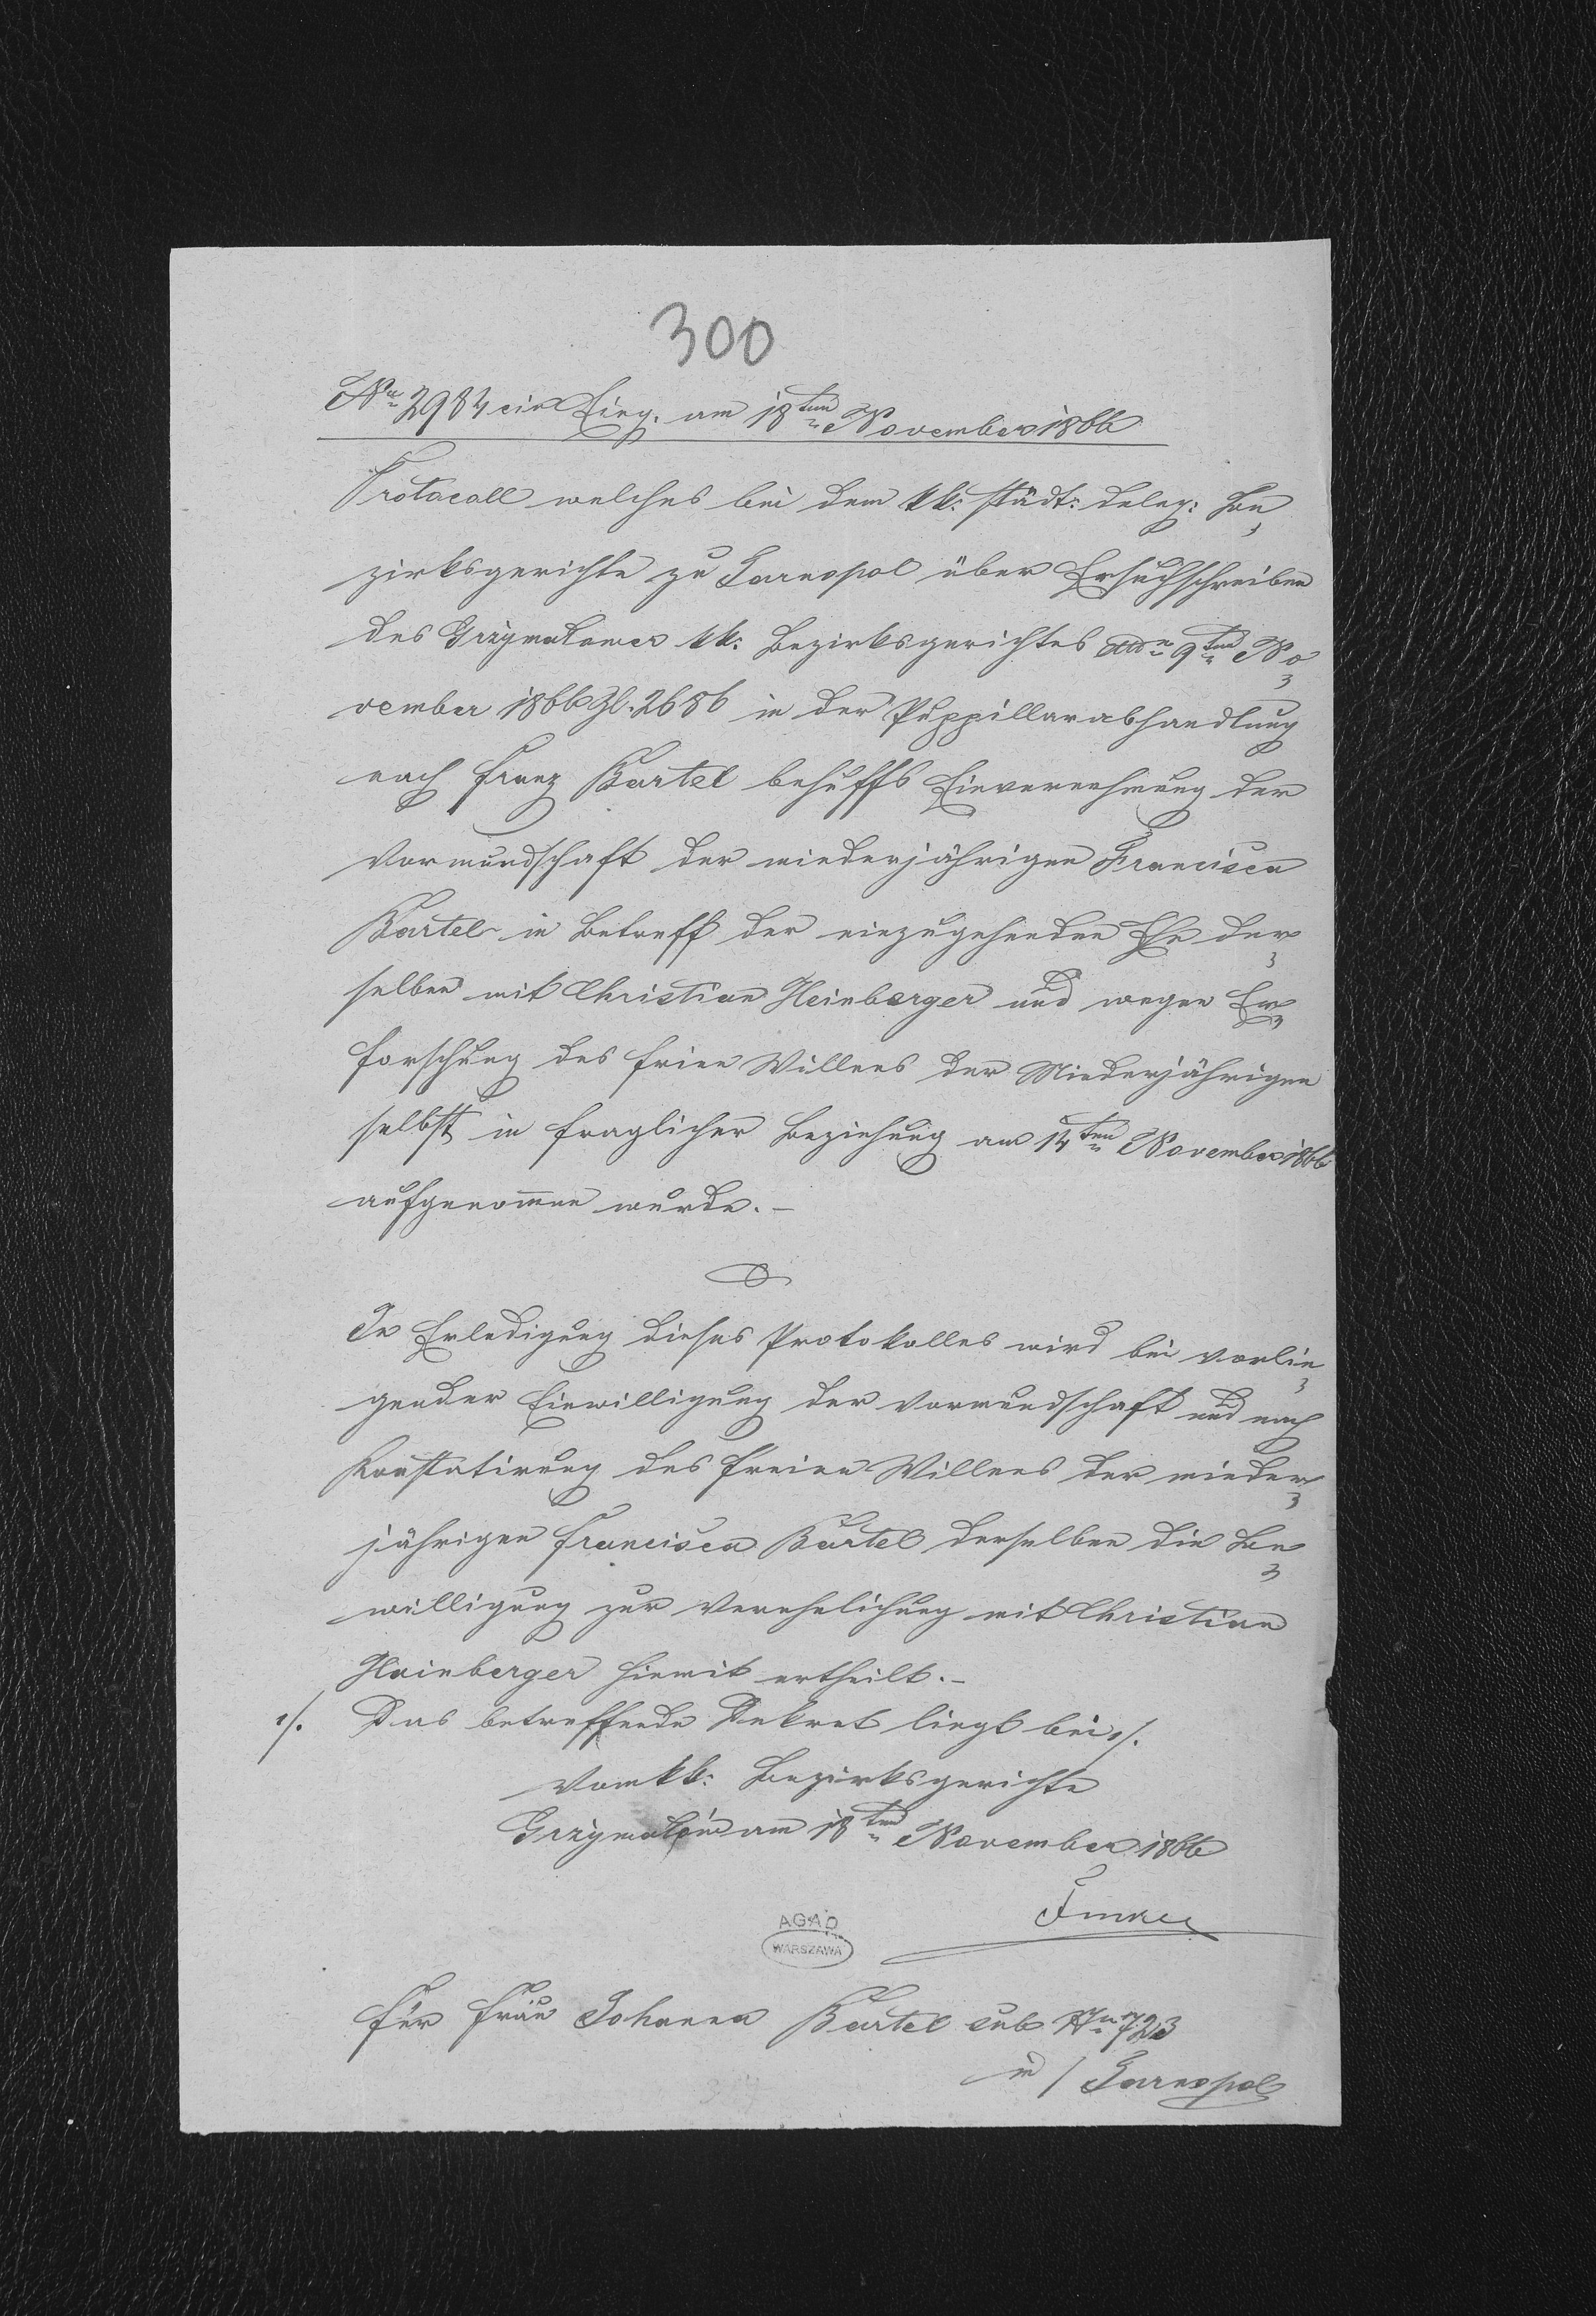 300
No 2984 civ Eing. am 18ten November 1866
Protocoll welches bei dem kk: städt: deleg: Be„
zirksgerichte zu Tarnopol über Ersuchschreiben
des Grzymałower kk: Bezirksgerichtes ddo 9ten No„
vember 1866 Zl. 2686 in der Puppillarabhandlung
nach Franz Bartel behuffs Einvernehmung der
Vormundschaft der minderjährigen Francisca
Bartel in Betreff der einzugehenden Ehe der„
selben mit Christian Heinberger und wegen Er„
forschung des freien Willens der Minderjährigen
selbst in fraglicher Beziehung am 14ten November 1866
aufgenom̅en wurde. –
In Erledigung dieses Protokolles wird bei vorlie„
gender Einwilligung der Vormundschaft und nach
Konstatirung des freien Willens der minder„
jährigen Francisca Bartel derselben die Be„
willigung zur Verehelichung mit Christian
Hainberger hiemit ertheilt. –
1/. Das betreffende Dekret liegt bei 1/.
Vom kk: Bezirksgerichte
Grzymałów am 18ten November 1866
AGAD
WARSZAWA
Für Frau Johanna Bartel sub No 723
in / Tarnopol